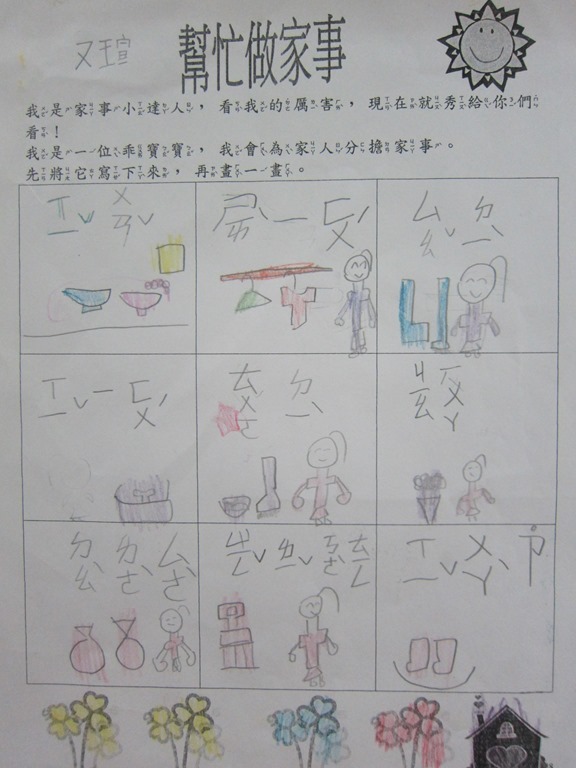 又瑄
幫忙做家事
我是家事小達人，看我的厲害，現在就秀給你們
看！
我是一位乖寶寶，我會為家人分擔家事。
先將它寫下來，再畫一畫。
ㄒㄧˇ ㄨㄢˇ
ㄕㄞˋ ㄧ ㄈㄨˊ
ㄙㄠˇ ㄉㄧˋ
ㄒㄧˇ ㄧ ㄈㄨˊ
ㄊㄨㄛ ㄉㄧˋ
ㄐㄠ ㄏㄨㄚ
ㄉㄠˋ ㄉㄜˋ ㄙㄜˋ
ㄒㄧˇ ㄨㄚˋ ˙ㄗ